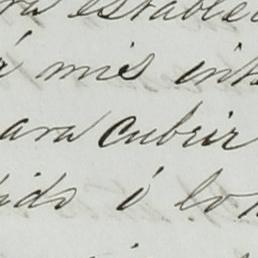 ra establec
á mis inte
ara cubrir
tido ó lo